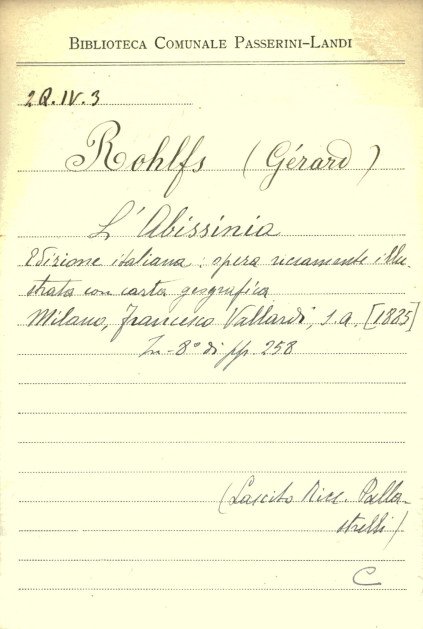 BIBLIOTECA COMUNALE PASSERINI-LANDI
2Q.IV.3
Rohlfs (Gérard)
L'Abissinia
Edizione italiana: opera riccamente illu-
strata con carta geografica
Milano, Francesco Vallardi, s.a. [1885]
In-8° di pp. 258
(Lascito Ricc. Palla-
strelli)
C